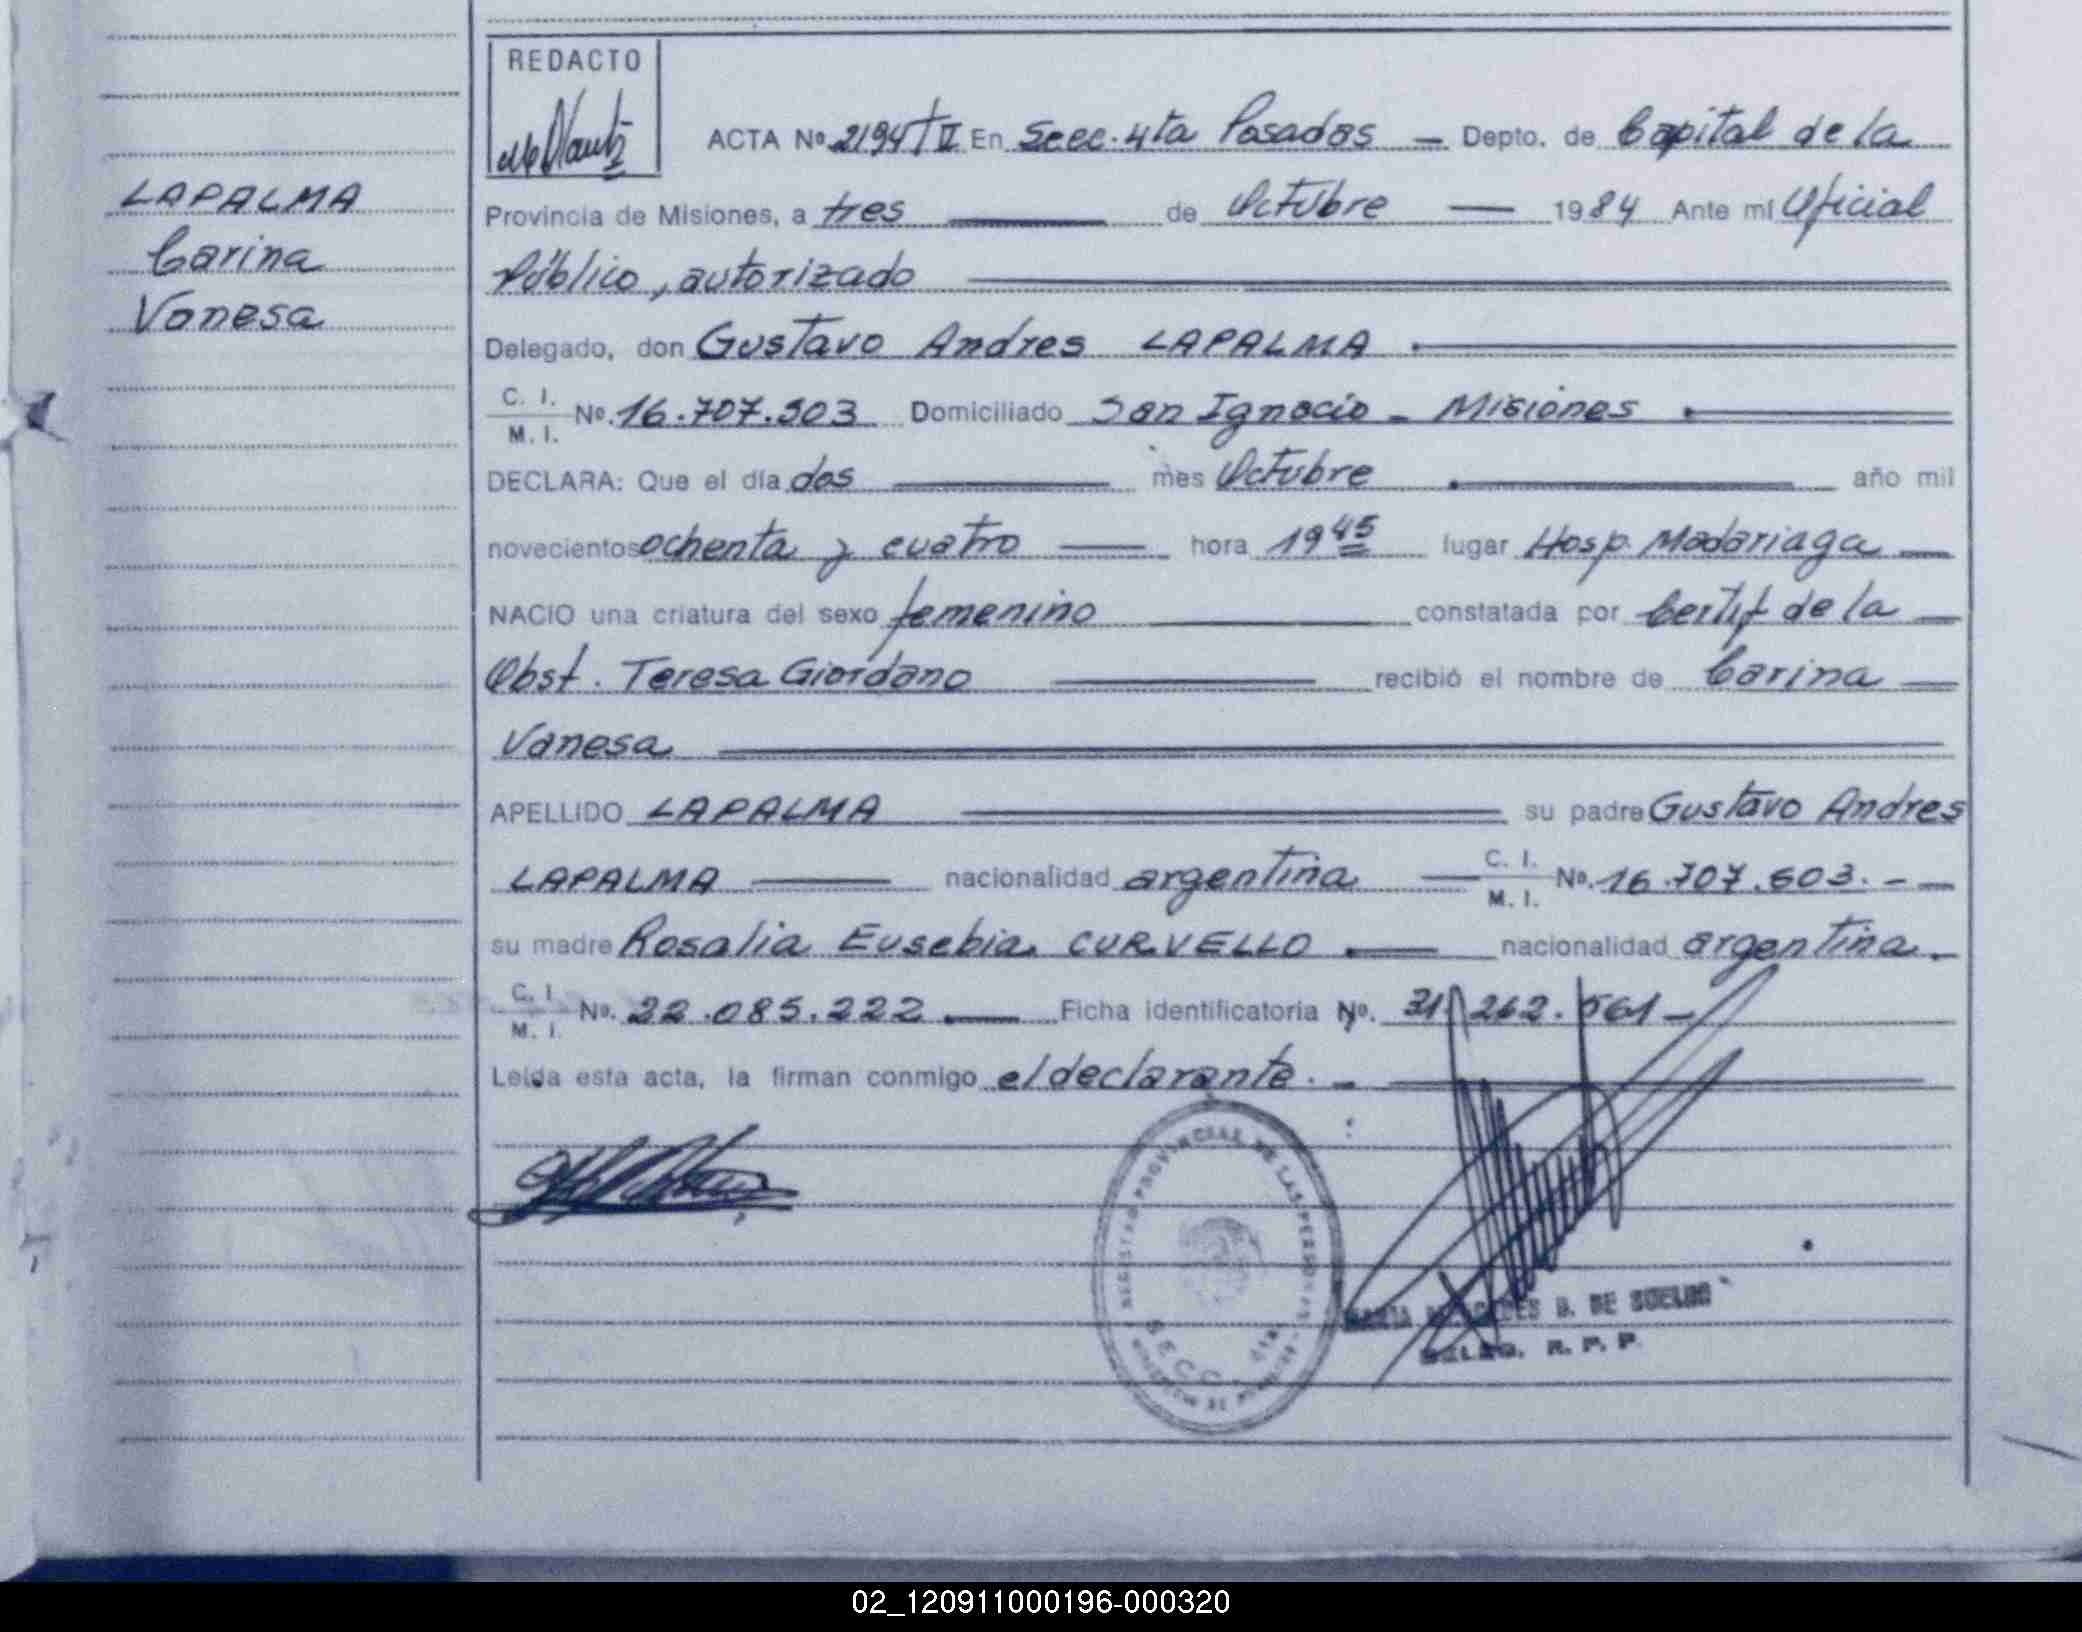 REDACTO
ACTA Nº 2194 T II En Secc. 4ta Posadas — Depto. de Capital de la
LAPALMA
Carina
Vanesa
Provincia de Misiones, a tres de Octubre — 1984 Ante mí Oficial
Público, autorizado
Delegado, don Gustavo Andres LAPALMA
C. I.
M. I. Nº. 16.707.503 Domiciliado San Ignacio - Misiones
DECLARA: Que el día dos mes Octubre año mil
novecientos ochenta y cuatro hora 19 45 lugar Hosp. Madariaga
NACIO una criatura del sexo femenino constatada por Certif de la
Obst. Teresa Giordano recibió el nombre de Carina
Vanesa
APELLIDO LAPALMA su padre Gustavo Andres
LAPALMA nacionalidad argentina C. I.
M. I. Nº. 16.707.603. -
su madre Rosalia Eusebia CURVELLO nacionalidad argentina.
C. I.
M. I. Nº. 22.085.222 Ficha identificatoria Nº. 31.262.561 -
Leída esta acta, la firman conmigo el declarante. -
REGISTRO PROVINCIAL DE LAS PERSONAS
SECC. 4ta
B. DE SUELDO
DELEG. R. P. P.
02_120911000196-000320